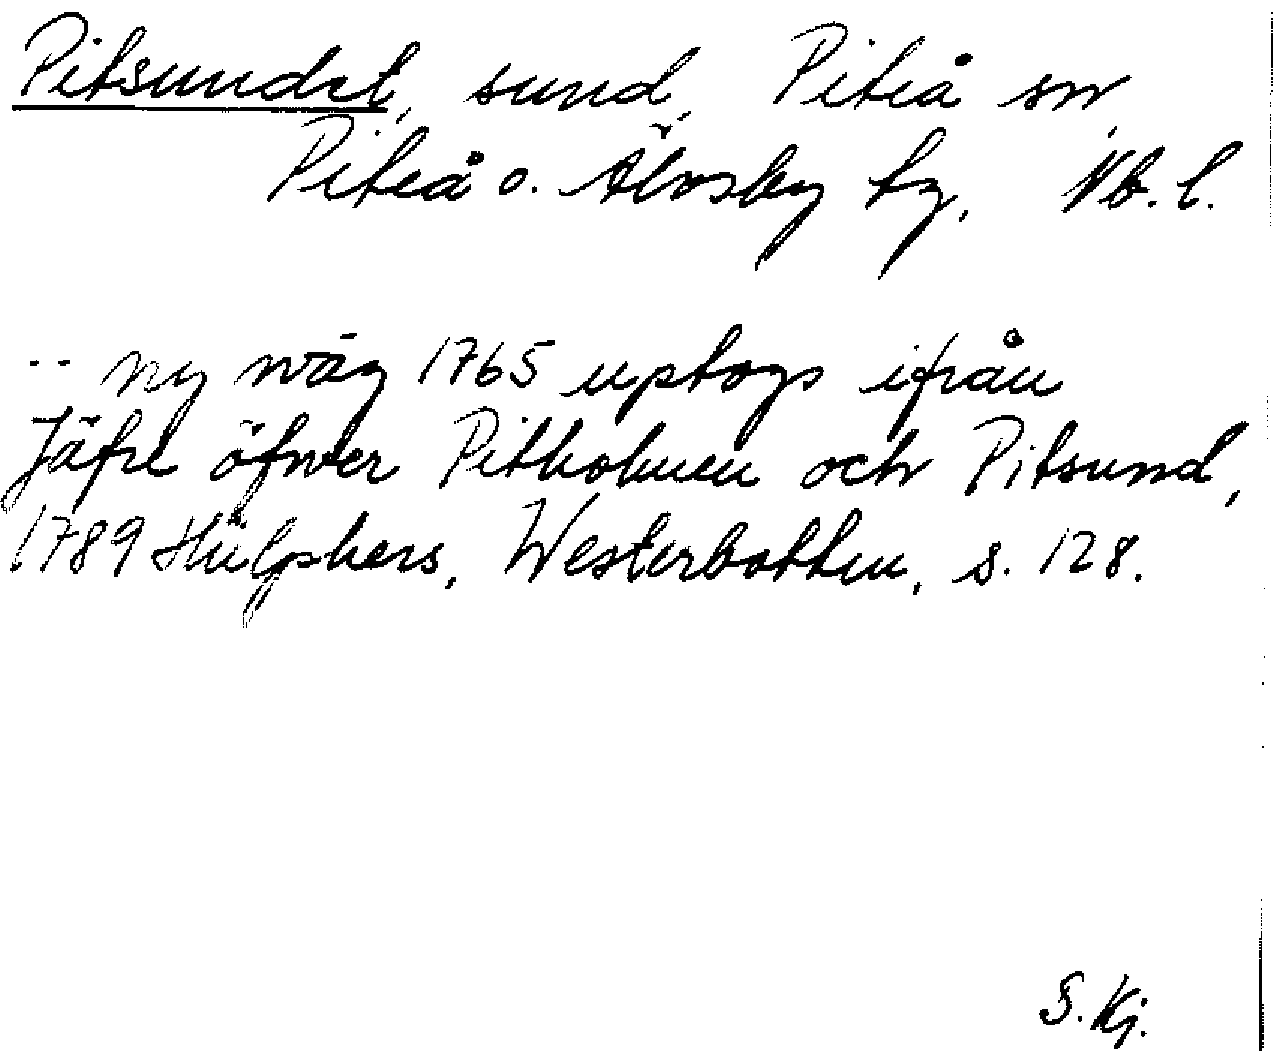 Pitsundet, sund, Piteå sn,
Piteå o. Älvsby tg, Nb. l.
-- ny wäg 1765 uptogs ifrån
Jäfre öfwer Pitholmen och Pitsund,
1789 Hülphers, Westerbotten, s. 128.
S. Kj.